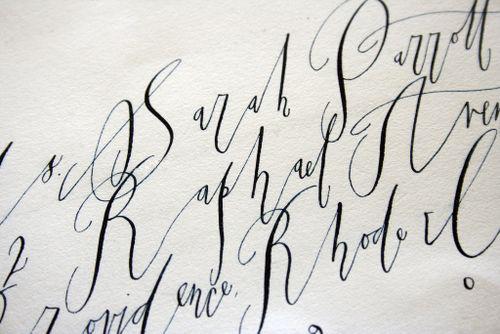 s. Sarah Parrott
2 Raphael Aven
Providence, Rhode I